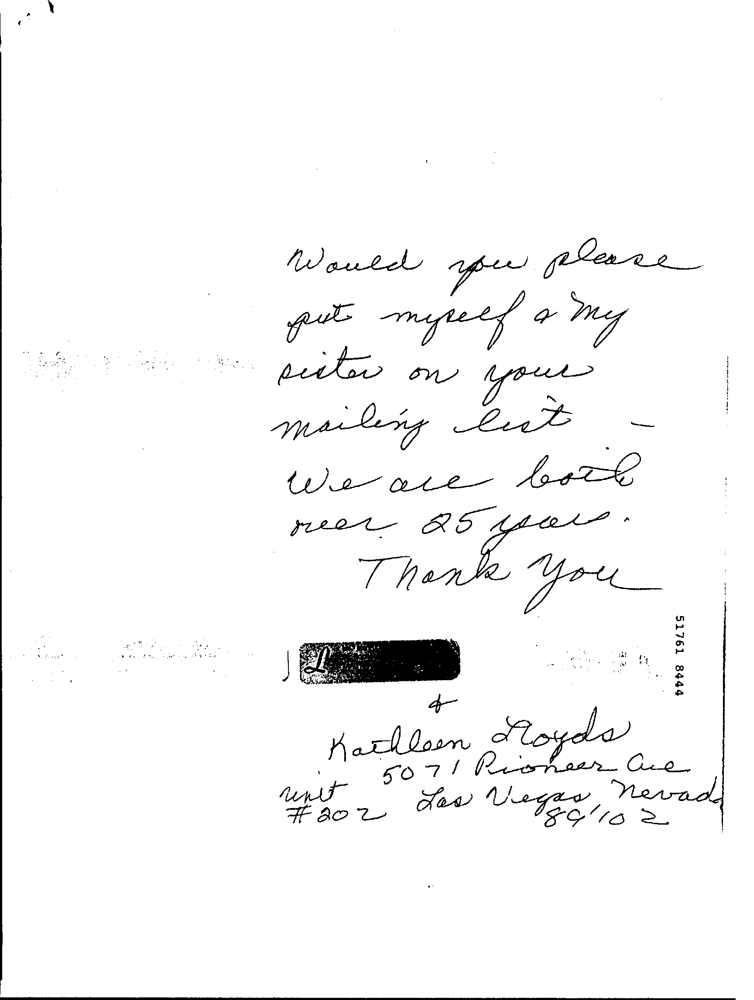 Would you please
put myself & My
sister on your
mailing list -
We are both
over 25 years.
Thank You
&
Kathleen Lloyds
5071 Pioneer Ave
Unit
#202 Las Vegas Nevada
89102
51761 8444